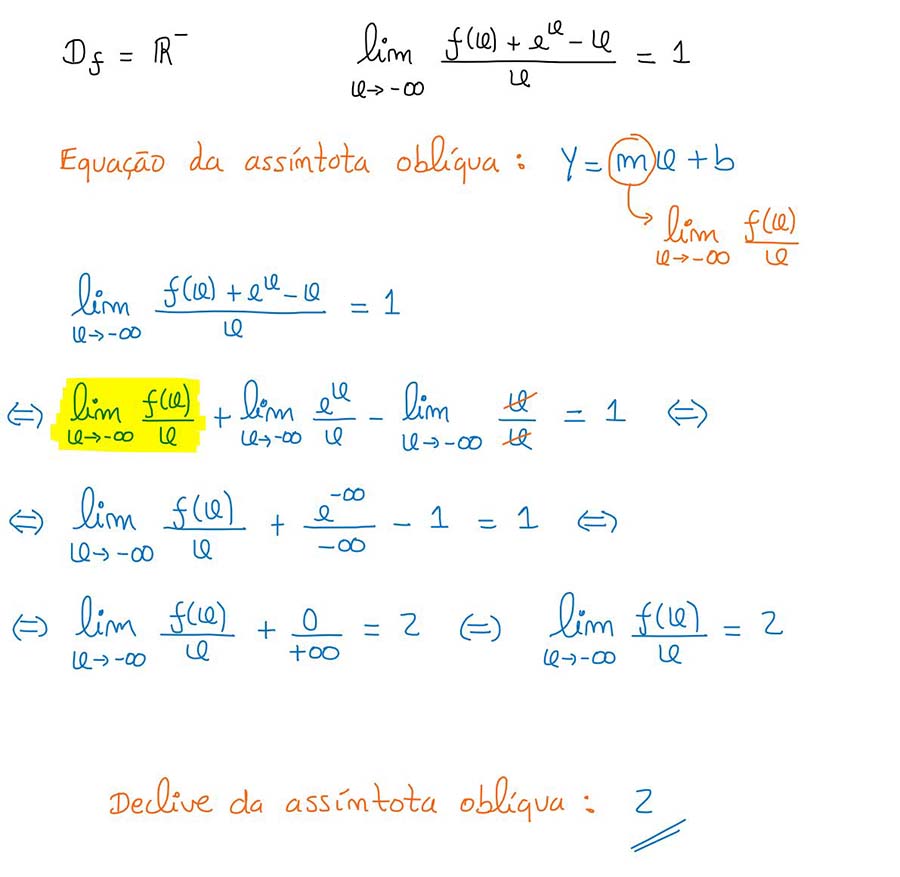 D_f = ℝ⁻    lim_{x→-∞} (f(x) + e^x - x)/x = 1
Equação da assíntota oblíqua : Y = mx + b
lim_{x→-∞} f(x)/x
lim_{x→-∞} (f(x) + e^x - x)/x = 1
⇔ lim_{x→-∞} f(x)/x + lim_{x→-∞} e^x/x - lim_{x→-∞} x/x = 1 ⇔
⇔ lim_{x→-∞} f(x)/x + e^{-∞}/-∞ - 1 = 1 ⇔
⇔ lim_{x→-∞} f(x)/x + 0/+∞ = 2 ⇔ lim_{x→-∞} f(x)/x = 2
Declive da assíntota oblíqua : 2